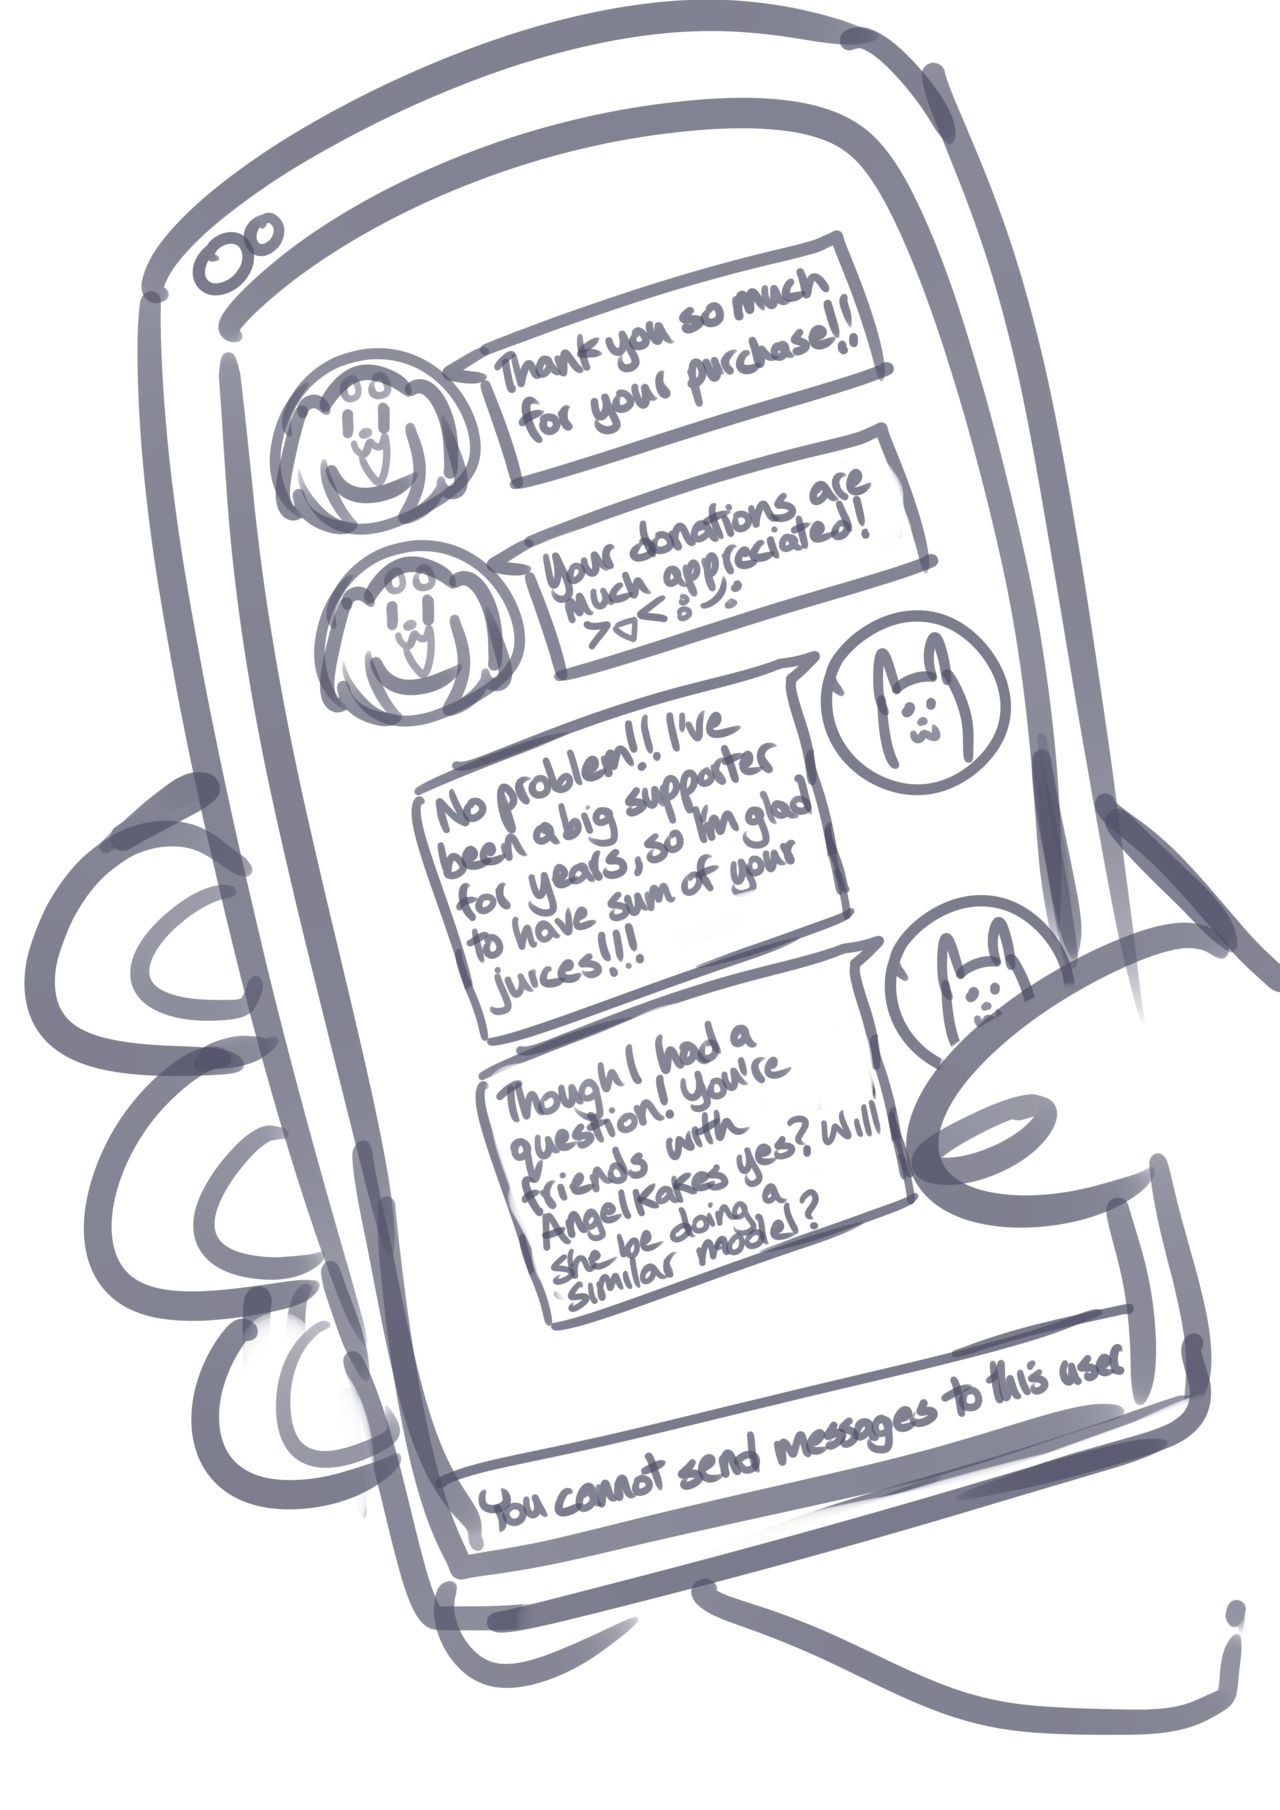 Thank you so much
for your purchase!!
Your donations are
much appreciated!
>▽<
No problem!! I've
been a big supporter
for years, so I'm glad
to have sum of your
juices!!!
Though I had a
question! You're
friends with
AngelKakes yes? Will
she be doing a
similar model?
You cannot send messages to this user